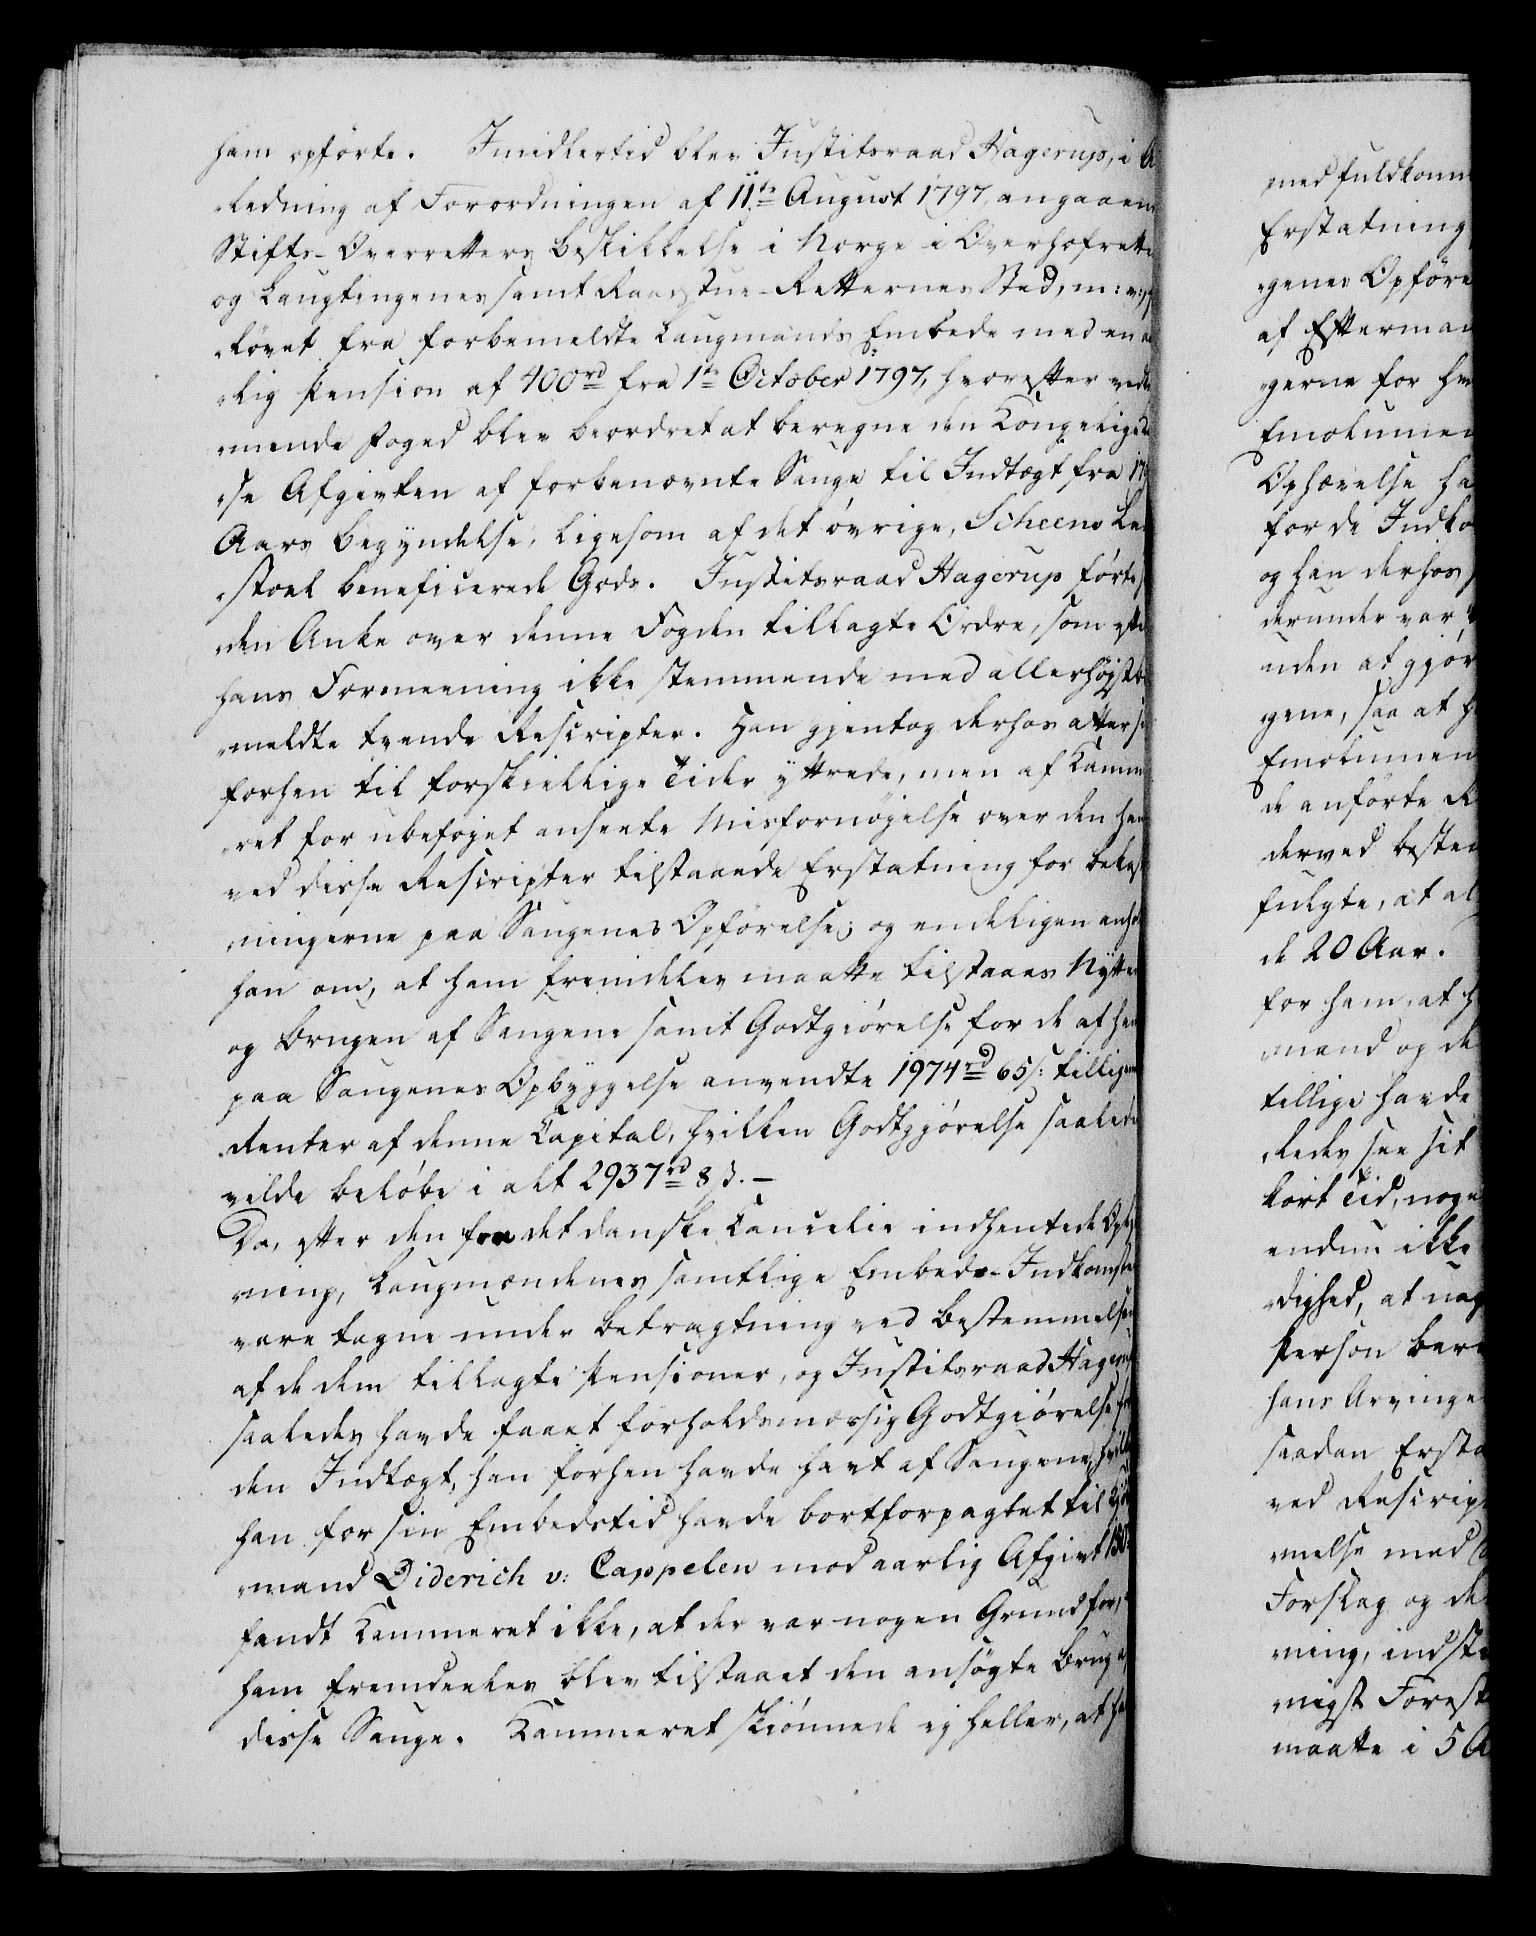 ham opförte. Imidlertid blev Justitsraad Hagerup, i A
ledning af Forordningen af 11te August 1797, angaaen
Stifts-Overretters Beskikkelse i Norge i Overhofrette
og Laugtingenes samt Raadstue-Retternes Sted, m: v:
löst fra forbemeldte Laugmands Embede med en a
lig Pension af 400rd fra 1te October 1797, hvorefter vedk
mende Foged blev beordret at beregne den Kongelige
se Afgivten af forbenævnte Sauge til Indtægt fra 17
Aars Begyndelse, ligesom af det øvrige, Scheens La
stoel beneficerede Gods. Justitsraad Hagerup førte
den Anke over denne Fogden tillagte Ordre, som eft
hans Formeening ikke stemmende med allerhøjstbe
meldte tvende Rescripter. Han gjentog derhos atter si
forhen til forskiellige Tider yttrede, men af Kamme
ret for ubeføjet ansete Misfornøjelse over den ha
ved disse Rescripter tilstaaede Erstatning for Bekost
ningerne paa Saugenes Opförelse; og endeligen anho
han om, at ham fremdeles maatte tilstaaes Nytte
og Brugen af Saugene samt Godtgiörelse for de af ham
paa Saugenes Opbyggelse anvendte 1974rd 65s: tillige
Renter af denne Capital, hvilken Godtgjörelse saalede
vilde beløbe i alt 2937rd 8s. —
Da, efter den fra det danske Cancelie indhentede Oply
ning, Laugmændenes samtlige Embeds-Indkomste
vare tagne under Betragtning ved Bestemmelsen
af de dem tillagte Pensioner, og Justitsraad Hageru
saaledes havde faaet forholdsmæssig Godtgiörelse fo
den Indtægt, han forhen havde havt af Saugene, hvilke
han for sin Embedstid havde bortforpagtet til Kiöb
mand Diderich v: Cappelen mod aarlig Afgivt 150
fandt Kammeret ikke, at der var nogen Grund for,
ham fremdeeles blev tilstaaet den ansøgte Brug a
disse Sauge. Kammeret skiönnede ej heller, at ha
med fuldkomm
Erstatning
genes Opföre
af Efterman
gerne for h
Emolumen
Ophævelse ha
for de Indko
og han derhos
derunder var
uden at gjør
gene, saa at h
Emolumen
de anførte R
derved bestem
fulgte, at al
de 20 Aar.
for ham, at h
mand og de
tillige havde
ledes see sit
kort Tid, noge
endnu ikke
dighed, at nog
Person bere
hans Arvinge
saadan Ersta
ved Rescrip
melse med
Forslag og de
ning, indst
nigst Forest
maatte i 5 A